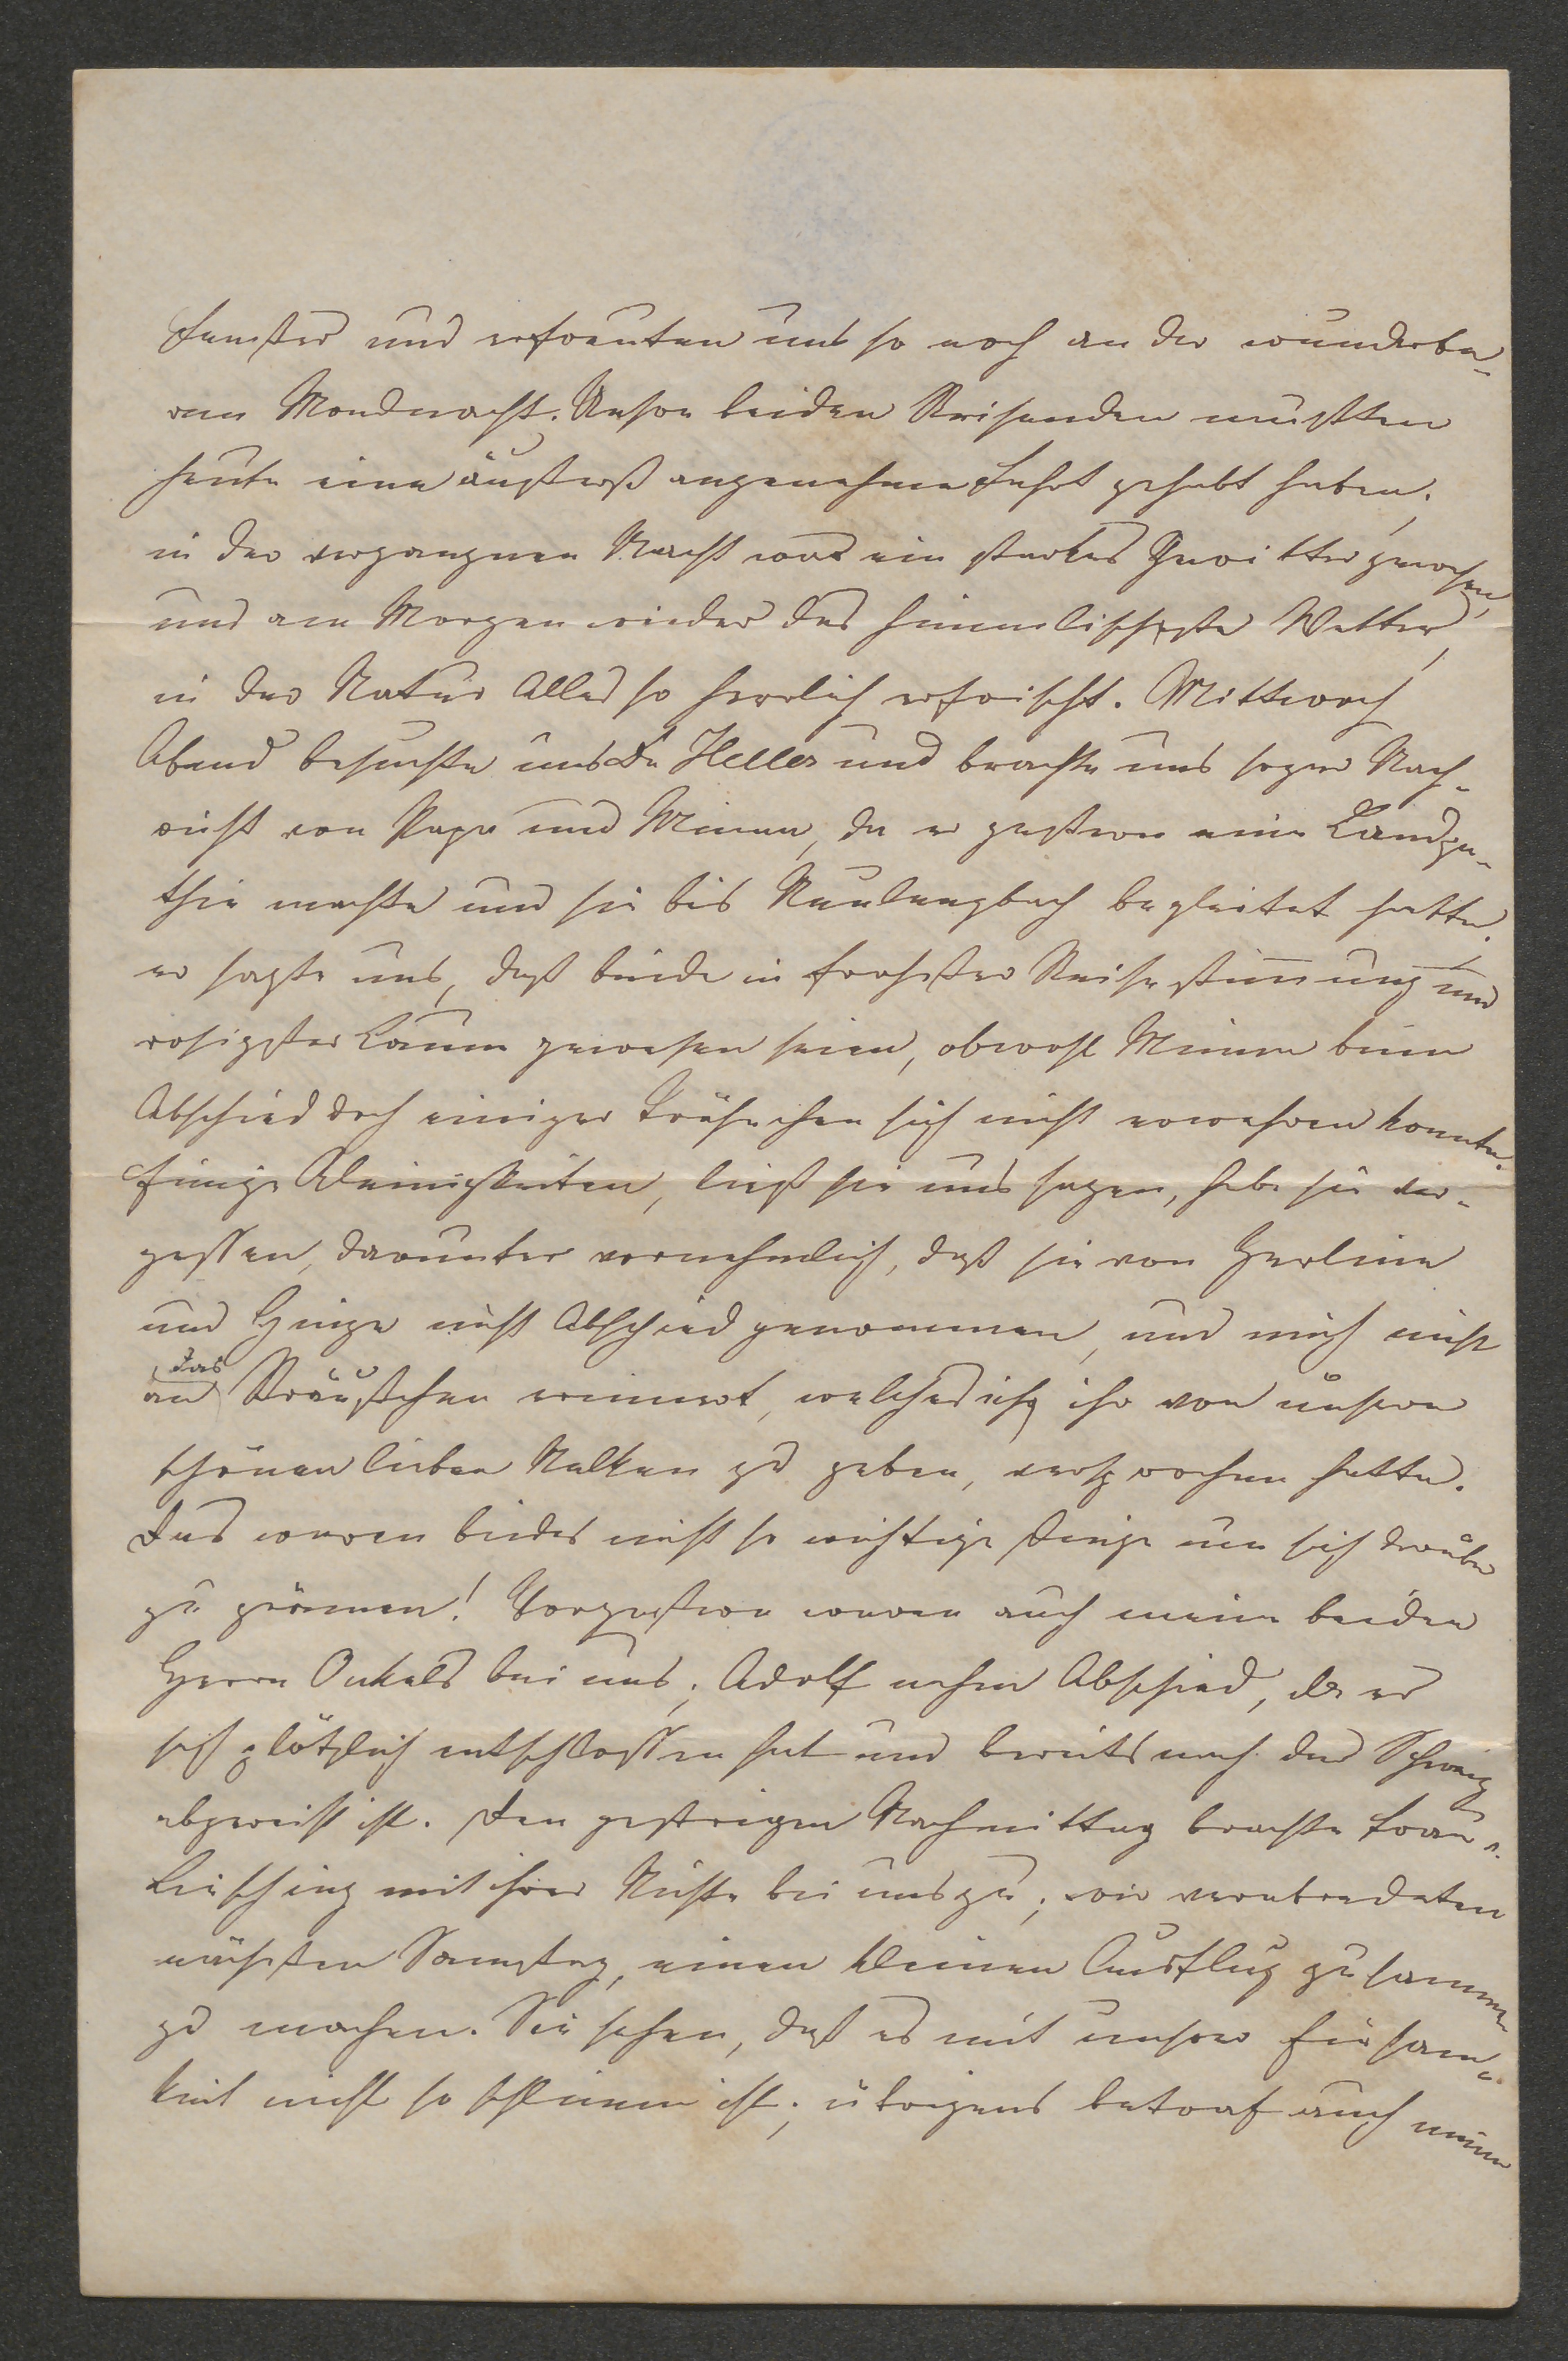 Fenster und erfreuten uns so noch an der wunderba-
ren Mondnacht. Unsre beiden Reisenden mußten
heute eine äußerst angenehme Fahrt gehabt haben;
in der vergangnen Nacht war ein starkes Gewitter gewesen,
und am Morgen wieder das himmlischste Wetter,
in der Natur Alles so herrlich erfrischt. Mittwoch
Abend besuchte uns Dr Heller und brachte uns sogar Nach-
richt von Papa und Minna, da er gestern eine Landpar-
thie machte und sie bis Neulengbach begleitet hatte;
er sagte uns, daß beide in frohster Reisestimmung und
rosigster Laune gewesen seien, obwohl Minna beim
Abschied doch einiger Thränchen sich nicht erwehren konnte.
Einige Kleinigkeiten, ließ sie uns sagen, habe sie ver-
gessen, darunter vornehmlich, daß sie von Herline
und Hinze nicht Abschied genommen, und mich nicht
an das Sträußchen erinnert, welches ich ihr von unsern
schönen lieben Nelken zu geben, versprochen hatte.
Das waren beides nicht so wichtige Dinge um sich darüber
zu grämen! Vorgestern waren auch meine beiden
Herrn Onkels bei uns; Adolf nahm Abschied, da er
sich plötzlich entschlossen hat und bereits nach der Schweiz
abgereist ist. Den gestrigen Nachmittag brachte Frau v.
Littrow mit ihrer Nichte bei uns zu; wir verabredeten
nächsten Samstag, einen kleinen Ausflug zusammen
zu machen. Sie sehen, daß es mit unsrer Einsam-
keit nicht so schlimm ist; übrigens betraf auch meine